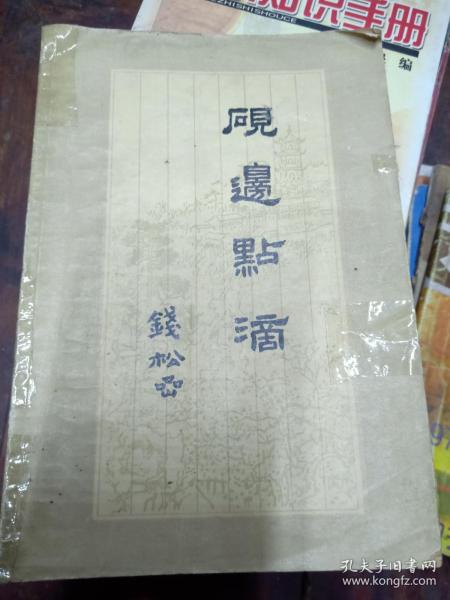 识手册
ZHISHISHOUCE
编
硯邊點滴
錢松喦
孔夫子旧书网
www.kongfz.com